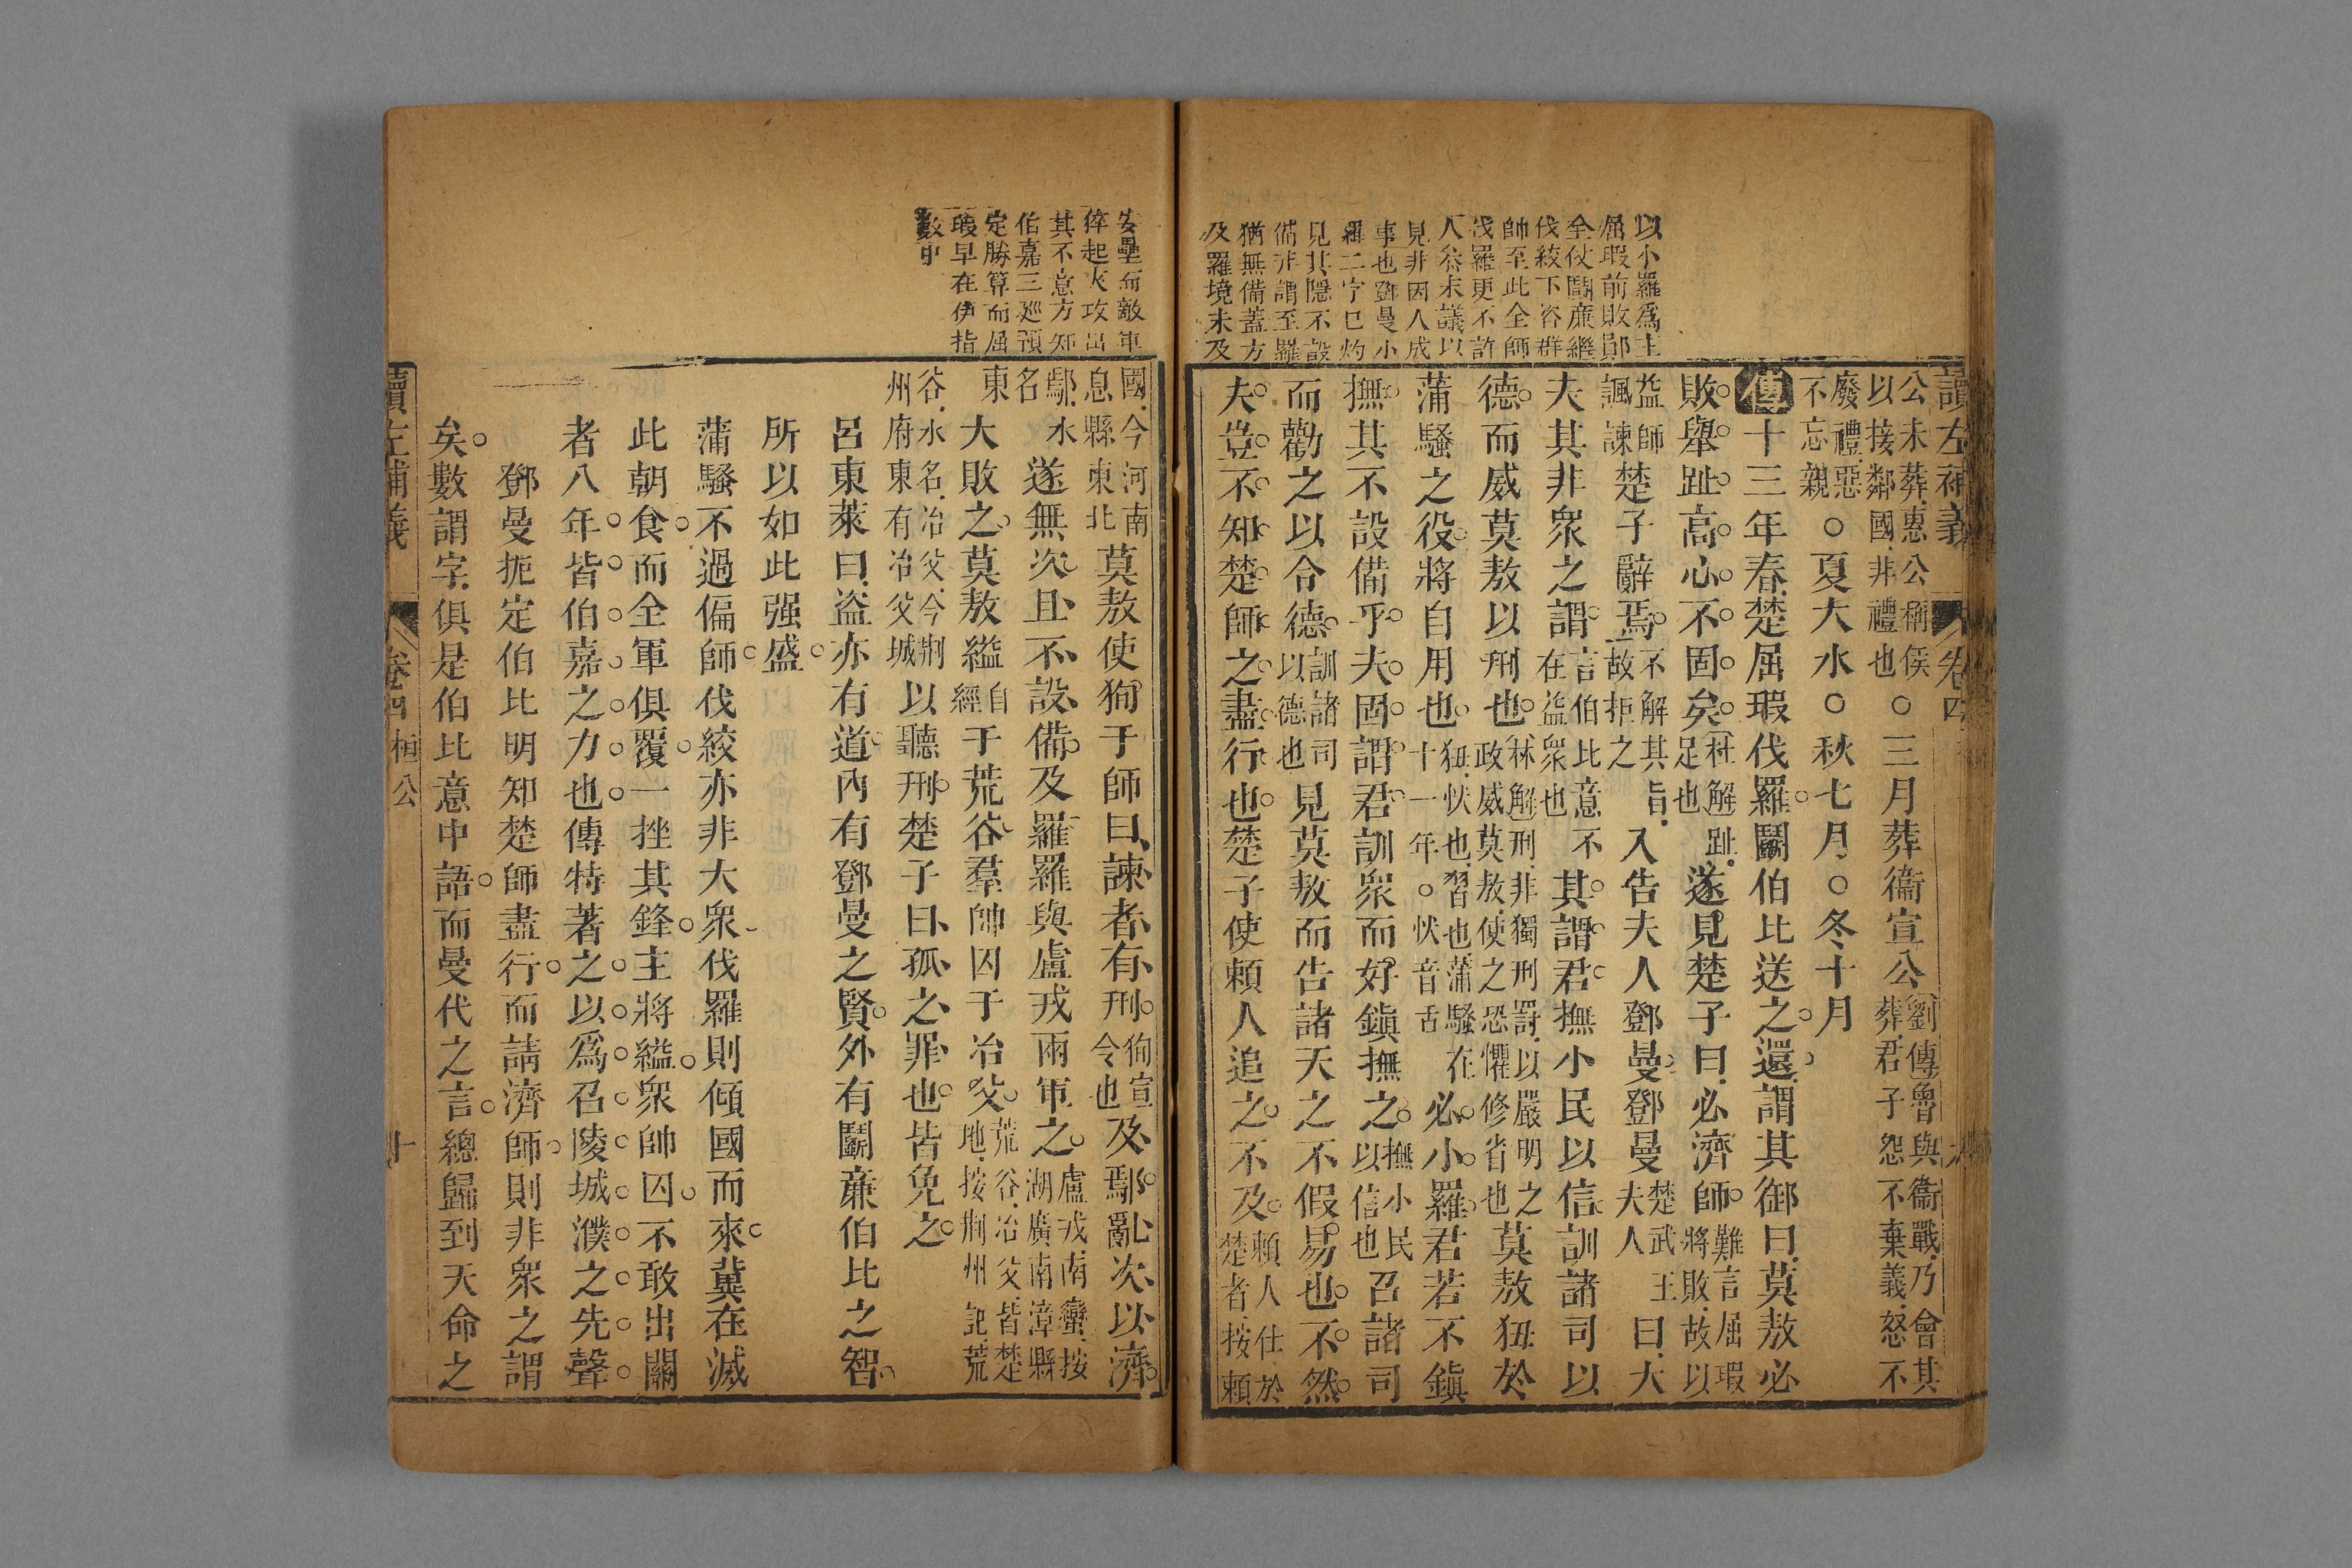 讀左補義 卷四
公未葬惠公稱侯以接鄰國非禮也○三月葬衞宣公劉傳魯與衞戰乃會其葬君子怨不棄義怒不
廢禮惡不忘親○夏大水○秋七月○冬十月
傳十三年春楚屈瑕伐羅鬭伯比送之還謂其御曰莫敖必
敗舉趾高心不固矣杜解趾足也遂見楚子曰必濟師難言屈瑕將敗故以
益師諷諫楚子辭焉不解其旨故拒之入告夫人鄧曼鄧曼楚武王夫人曰大
夫其非衆之謂言伯比意不在益衆也其謂君撫小民以信訓諸司以
德而威莫敖以刑也林解刑非獨刑罰以嚴明之政威莫敖使之恐懼修省也莫敖狃於
蒲騷之役將自用也狃忕也習也蒲騷在十一年○忕音舌必小羅君若不鎮
撫其不設備乎夫固謂君訓衆而好鎮撫之撫小民以信也召諸司
而勸之以令德訓諸司以德也見莫敖而告諸天之不假易也不然
夫豈不知楚師之盡行也楚子使賴人追之不及賴人仕於楚者按賴
以小羅爲主
屈瑕前敗鄖
全仗鬭廉繼
伐絞下容群
帥至此全師
伐羅更不許
人參末議以
見非因人成
事也鄧曼小
羅二字已灼
見其隱不設
備非謂至羅
猶無備蓋方
及羅境未及
國今河南息縣東北莫敖使狥于師曰諫者有刑狥宣令也及鄢亂次以濟
鄢水名遂無次且不設備及羅羅與盧戎兩軍之盧戎南蠻按湖廣南漳縣
東大敗之莫敖縊自經于荒谷羣帥囚于冶父荒谷冶父皆楚地按荆州記荒
谷水名冶父今荆州府東有冶父城以聽刑楚子曰孤之罪也皆免之
呂東萊曰盜亦有道內有鄧曼之賢外有鬭廉伯比之智
所以如此强盛
蒲騷不過偏師伐絞亦非大衆伐羅則傾國而來冀在滅
此朝食而全軍俱覆一挫其鋒主將縊衆帥囚不敢出關
者八年皆伯嘉之力也傳特著之以爲召陵城濮之先聲
鄧曼扼定伯比明知楚師盡行而請濟師則非衆之謂
矣數謂字俱是伯比意中語而曼代之言總歸到天命之
安壘而敵軍
猝起火攻出
其不意方知
伯嘉三廵預
定勝算而屈
瑕早在伊指
數中
讀左補義 卷四 桓公 十